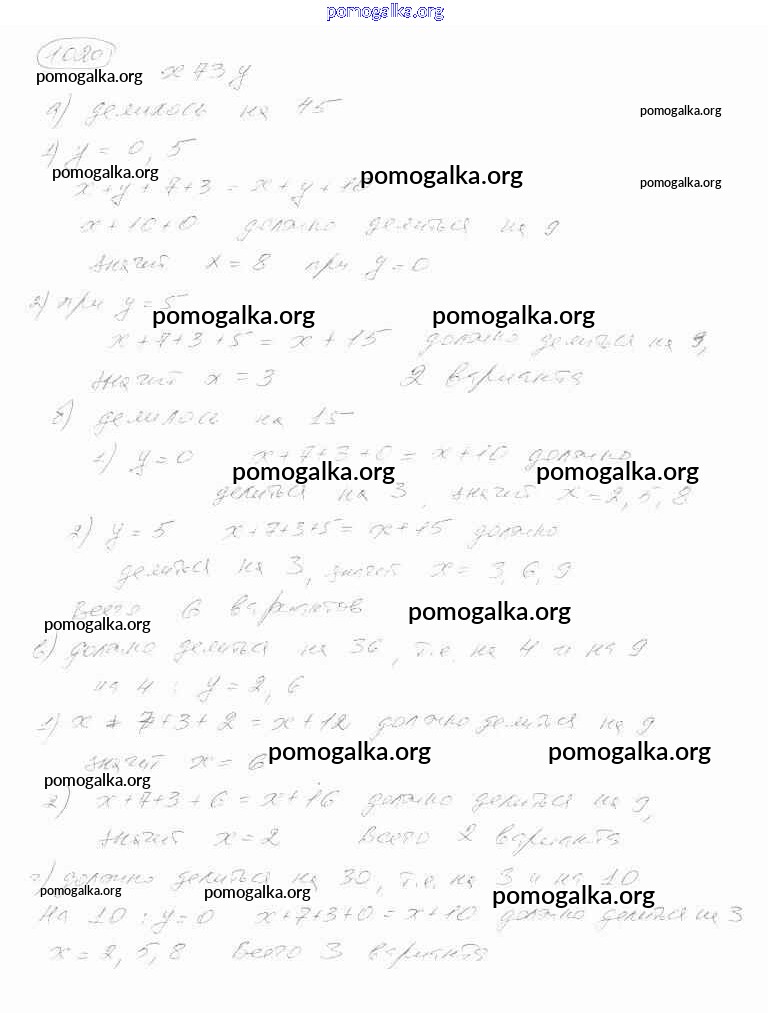 pomogalka.org
1020
pomogalka.org x 73 y
а) делилось на 45 pomogalka.org
1) y = 0, 5
pomogalka.org pomogalka.org pomogalka.org
x + y + 7 + 3 = x + y + 10
x + 10 + 0 должно делиться на 9
значит x = 8 при y = 0
2) при y = 5
pomogalka.org pomogalka.org
x + 7 + 3 + 5 = x + 15 должно делиться на 9,
значит x = 3 2 варианта
б) делилось на 15
1) y = 0 x + 7 + 3 + 0 = x + 10 должно
pomogalka.org pomogalka.org
делиться на 3, значит x = 2, 5, 8
2) y = 5 x + 7 + 3 + 5 = x + 15 должно
делиться на 3, значит x = 3, 6, 9
Всего 6 вариантов pomogalka.org
pomogalka.org
в) должно делиться на 36, т.е. на 4 и на 9
на 4 : y = 2, 6
1) x + 7 + 3 + 2 = x + 12 должно делиться на 9
значит x = 6 pomogalka.org pomogalka.org
pomogalka.org
2) x + 7 + 3 + 6 = x + 16 должно делиться на 9,
значит x = 2 Всего 2 варианта
г) должно делиться на 30, т.е. на 3 и на 10
pomogalka.org pomogalka.org pomogalka.org
на 10 : y = 0 x + 7 + 3 + 0 = x + 10 должно делиться на 3
x = 2, 5, 8 Всего 3 варианта